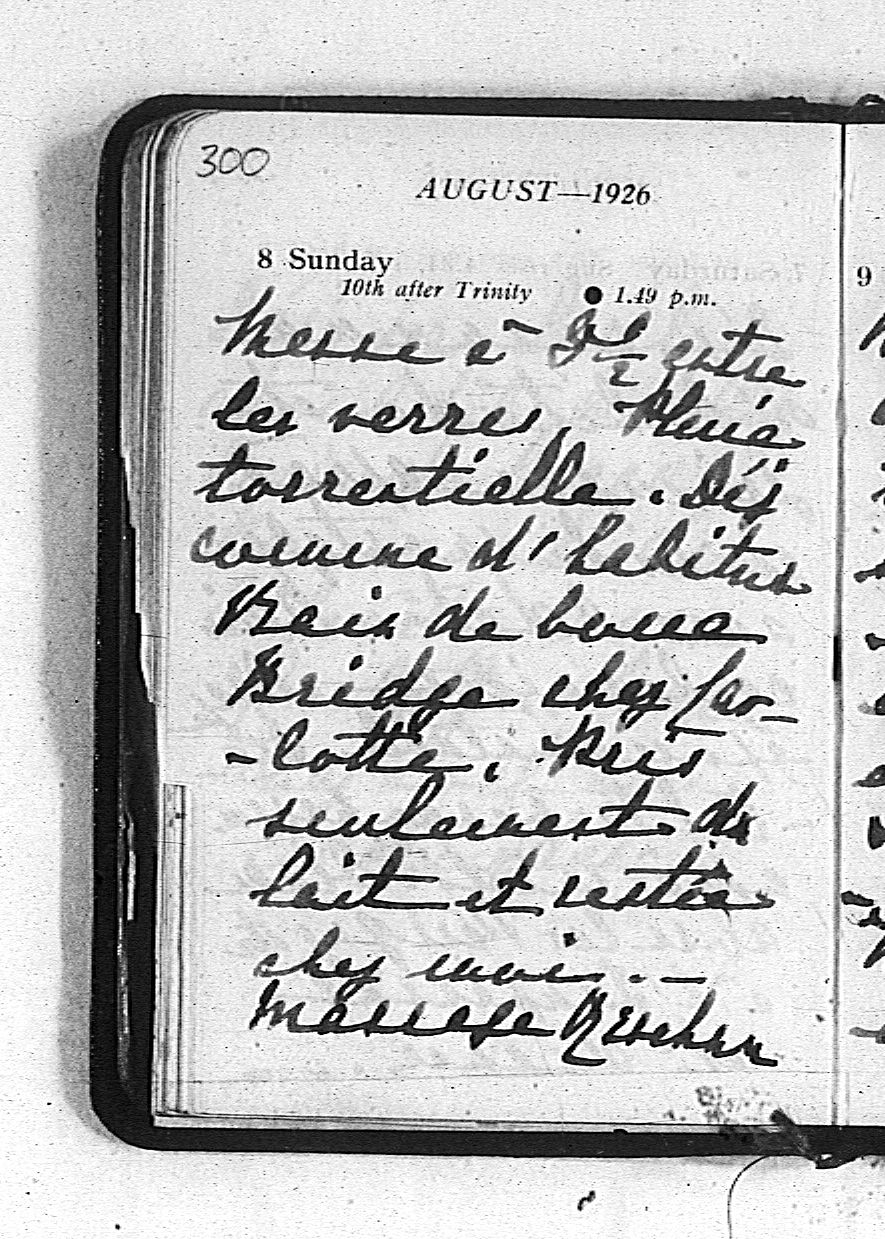 300
AUGUST—1926
8 Sunday
10th after Trinity ● 1.49 p.m.
9
Messe à entre
les verres. Pluie
torrentielle. Déj
comme d'habitude
Bain de boue
Bridge chez Car-
-lotta. Pris
seulement du
lait et restée
chez moi. —
Massage